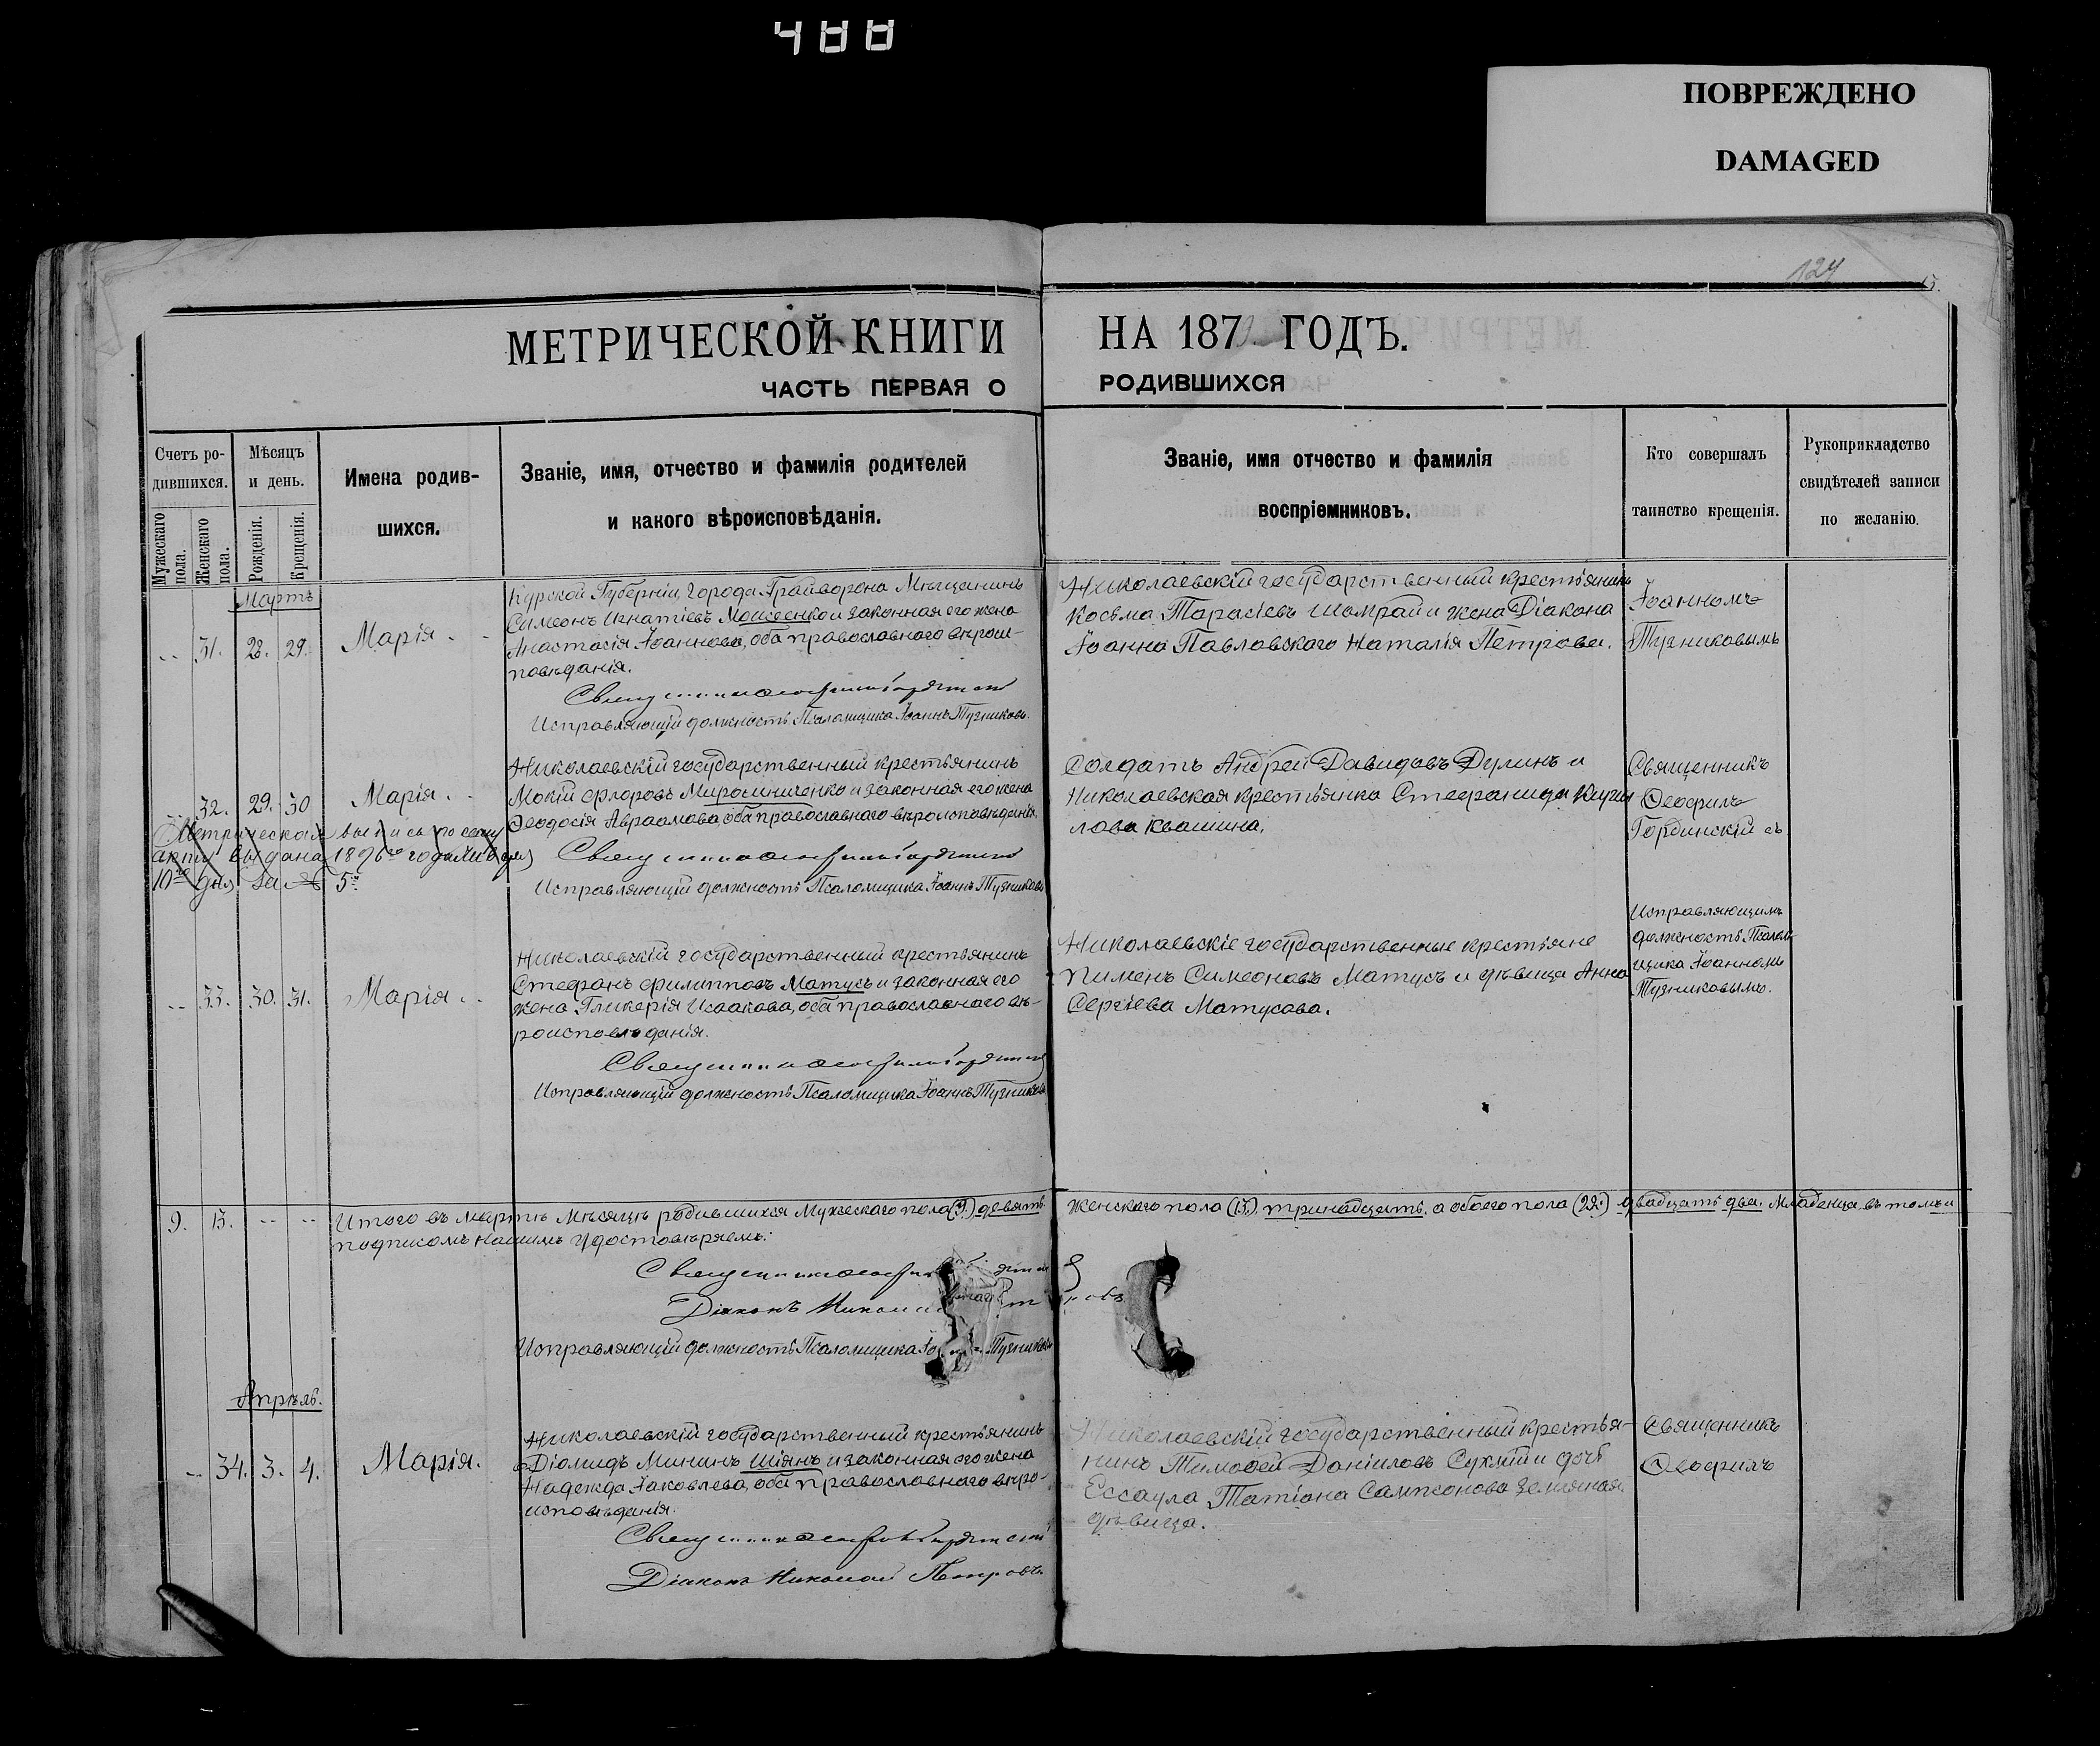 488
ПОВРЕЖДЕНО
DAMAGED
124
15.
МЕТРИЧЕСКОЙ КНИГИ НА 187 ГОДЪ.
ЧАСТЬ ПЕРВАЯ О РОДИВШИХСЯ
Счетъ ро-
дившихся.
Мужескаго пола.
Женскаго пола.
Мѣсяцъ
и день.
Рожденія.
Крещенія.
Имена родив-
шихся.
Званіе, имя, отчество и фамилія родителей
и какого вѣроисповѣданія.
Званіе, имя отчество и фамилія
воспріемниковъ.
Кто совершалъ
таинство крещенія.
Рукоприкладство
свидѣтелей записи
по желанію.
Мартъ
-- 31. 28. 29. Марія.
Курской Губерніи, города Грайворона Мѣщанинъ
Симеонъ Игнатіевъ Моисеенко и законная его жена
Анастасія Іоаннова, оба православнаго вѣроис-
повѣданія.
Исправляющій должность Псаломщика Іоаннъ Тузниковъ.
Николаевскій государственный крестьянинъ
Косьма Тарасіевъ Шамрай и жена Діакона
Іоанна Павловскаго Наталія Петрова.
Іоанномъ
Тузниковымъ
-- 32. 29. 30 Марія.
Николаевскій государственный крестьянинъ
Мокій Флоровъ Мирошниченко и законная его жена
Феодосія Авраамова, оба православнаго вѣроисповѣданія.
Исправляющій должность Псаломщика Іоаннъ Тузниковъ
Метрическая выпись по сему
акту выдана 1896го года
10го дня за № 5м
Солдатъ Андрей Давидовъ Дулинъ и
Николаевская крестьянка Стефанида Кирил
лова Квашина.
Священникъ
Ѳеофилъ
Гординскій съ
Исправляющимъ
должность Псалом-
щика Іоанномъ
Тузниковымъ.
-- 33. 30. 31. Марія.
Николаевскій государственный крестьянинъ
Стефанъ Филипповъ Матусъ и законная его
жена Гликерія Исаакова, оба православнаго вѣ-
роисповѣданія.
Исправляющій должность Псаломщика Іоаннъ Тузниковъ
Николаевскіе государственные крестьяне
Пименъ Симеоновъ Матусъ и дѣвица Анна
Сергіева Матусова.
9. 13. -- -- Итого въ Мартѣ Мѣсяцѣ родившихся Мужескаго пола (9) девять. Женскаго пола (13.) тринадцать, а обоего пола (22.) двадцать два. Младенца, въ томъ и
подписомъ нашимъ удостовѣряемъ:
Діаконъ Никола
Исправляющій должность Псаломщика Тузниковъ
Апрѣль.
-- 34. 3. 4. Марія.
Николаевскій государственный крестьянинъ
Діомидъ Мининъ Шіянъ и законная его жена
Надежда Іаковлева, оба православнаго вѣро-
исповѣданія.
Діаконъ Николай Петровъ
Николаевскій государственный крестья-
нинъ Тимоѳей Даніиловъ Сухій и дочь
Ессаула Татіана Сампсонова Земляная
дѣвица.
Священникъ
Ѳеофилъ